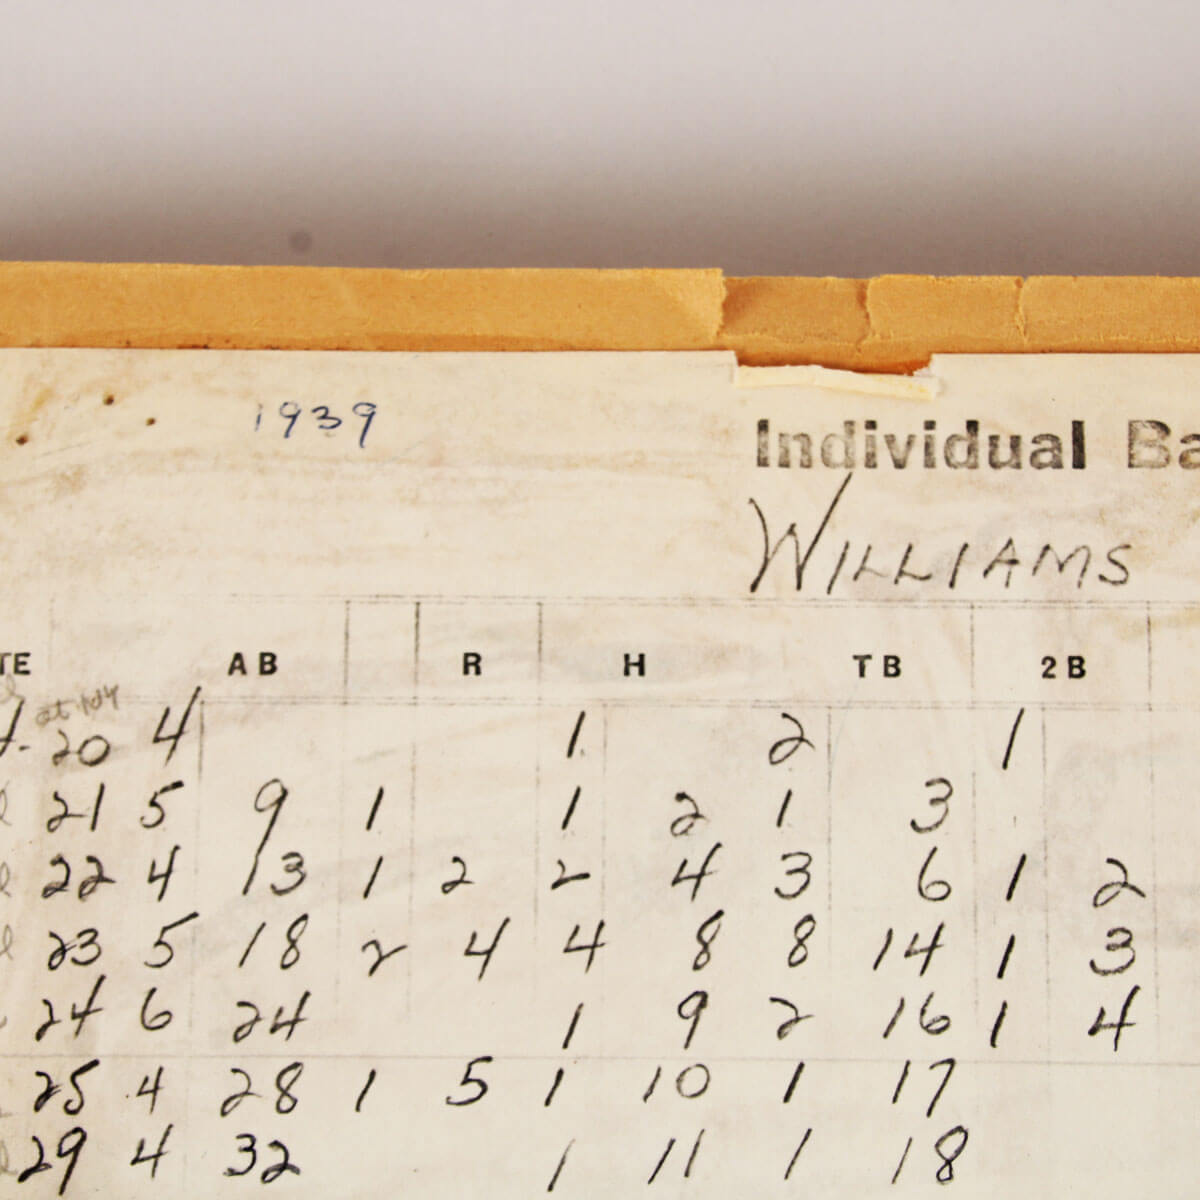 1939
Individual Ba
WILLIAMS
TE AB R H TB 2B
at NY
20 4 1 2 1
21 5 9 1 1 2 1 3
22 4 13 1 2 2 4 3 6 1 2
23 5 18 2 4 4 8 8 14 1 3
24 6 24 1 9 2 16 1 4
25 4 28 1 5 1 10 1 17
29 4 32 1 11 1 18